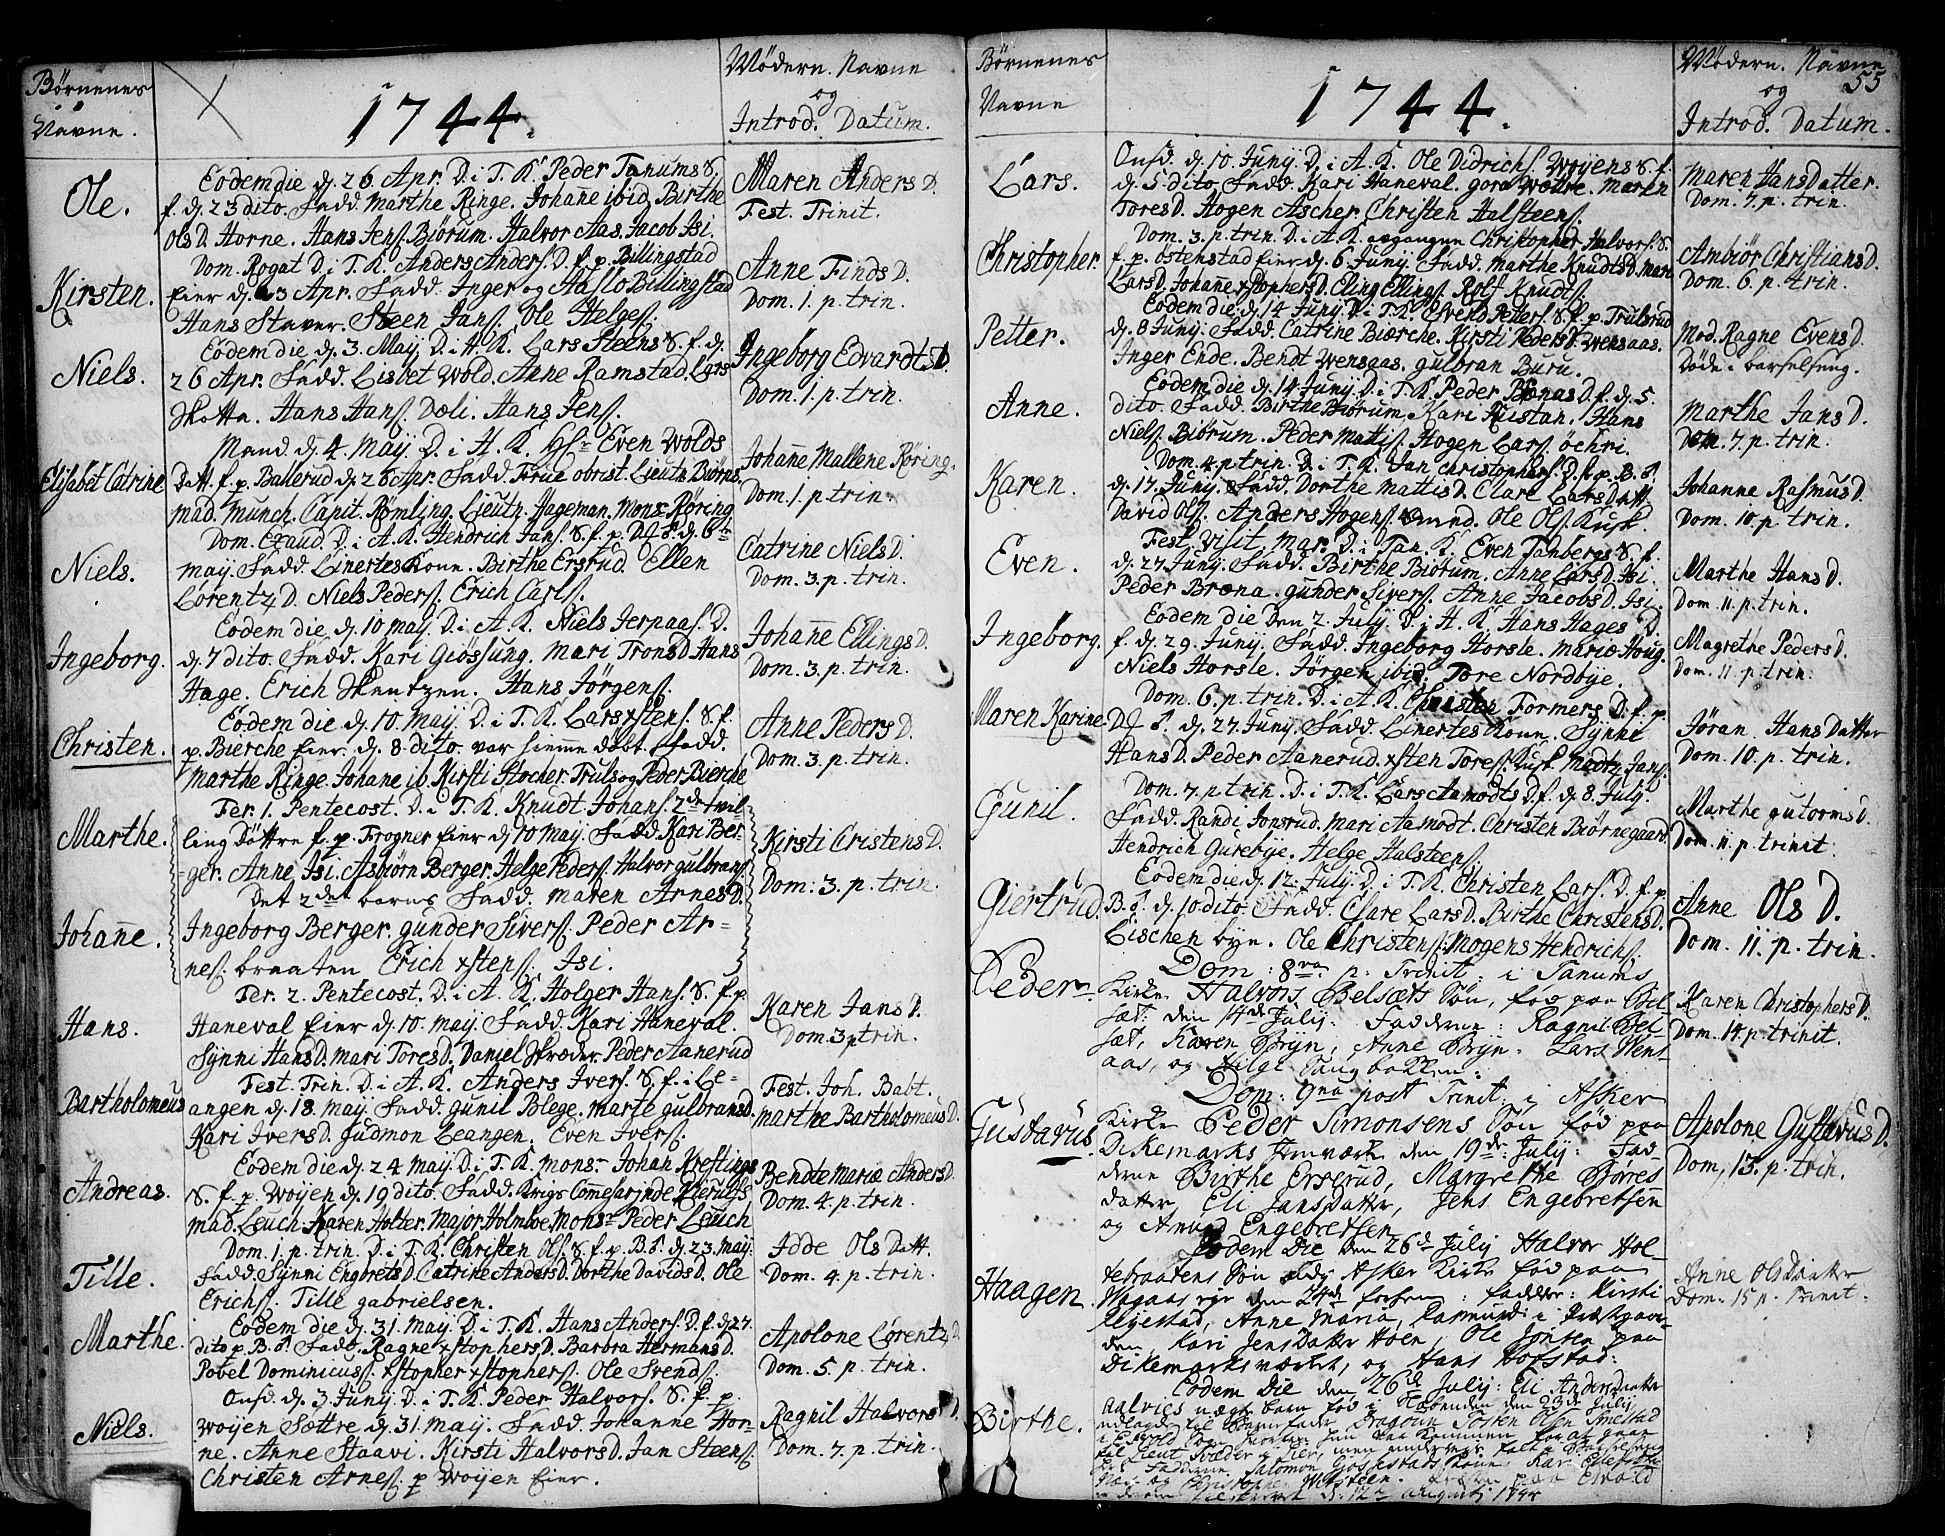 Børnenes
Navne.
1744.
Mödern. Navne
og
Introd. Datum.
Ole.
Eodem die d. 26. Apr. D. i T. K. Peder Tanums S.
f. d. 23 dito. Fadd. Marthe Ringe. Johañe ibid. Birthe
Ols D. Horne. Hans Jens. Biørum. Halvor Aas. Jacob Isi.
Maren Anders D.
Fest. Trinit.
Kirsten.
Dom. Rogat D. i T. K. Anders Anders. D. f. p. Billingstad
Eier d. 23 Apr. Fadd. Inger og Aaslo Billingstad
Hans Staver. Steen Jans. Ole Helges.
Anne Finds D.
Dom. 1. p. trin.
Niels.
Eodem die d. 3. May. D. i A. K. Lars Steens S. f. d.
26 Apr. Fadd. Lisbet Wold. Anne Ramstad. Lars
Skotta. Hans Hans. Dæli. Hans Jens.
Ingeborg Edvardts D.
Dom. 1. p. trin.
Elisabet Catrine
Mand. d. 4. May. D. i A. K. Hr. Even Wolds
Datt. f. p. Ballerud d. 26 Apr. Fadd. Frue obrist. Lieutn. Biørns.
mad. Munch. Capit. Rømling. Lieutn. Hageman. Monsr. Røring
Johañe Mallene Røring.
Dom. 1. p. trin.
Niels.
Dom. Exaud. D. i A. K. Hendrich Jans. S. f. p. d. 6te
may. Fadd. Linertes Konn. Birthe Ersrud. Ellen
Lorentz D. Niels Peders. Erich Carls.
Catrine Niels D.
Dom. 3. p. trin.
Ingeborg.
Eodem die d. 10 may. D. i A. K. Niels Jerpaas. D.
d. 7 dito. Fadd. Kari Giøssung. mari Trons D. Hans
Hage. Erich Skentzen. Hans Jørgens.
Johañe Ellings D.
Dom. 3. p. trin.
Christen.
Eodem die d. 10 may. D. i T. K. Lars xstens. S. f.
p. Bierche Eier. d. 8 dito. var hiemme døbt. Fadd.
Marthe Ringe. Johane ib. Kirsti Stocher. Truls og Peder Bierche
Anne Peders D.
Dom. 3. p. trin.
Marthe.
Fer. 1. Pentecost. D. i T. K. Knudt Johans. 2de tvil-
ling Døttre f. p. Frogner Eier d. 10 may. Fadd. Kari Ber-
ger. Anne Isi. Asbiørn Berger. Helge Peders. Halvor gulbrans.
Kirsti Cristens D.
Dom. 3. p. trin.
Johañe.
Det 2det barns Fadd. maren Arnes D.
Ingeborg Berger. gunder Sivers. Peder Ar-
nes. braaten. Erich xstens. Isi.
Hans.
Fer. 2. Pentecost. D. i A. K. Holger Hans. S. f. p.
Haneval Eier d. 10. may. Fadd. Kari Haneval.
Synni Hans D. mari Tores D. Daniel Skræder. Peder Aanerud
Karen Jans D.
Dom 3 p trin.
Bartholomeus
Fest. Trin. D. i A. K. Anders Ivers. S. f. i Le-
angen d. 18. may. Fadd. gunil Blege. marte gulbrans D.
Kari Ivers D. gudmon Leangen. Even Ivers.
Fest. Joh. Babt.
Marthe Bartholomeus D.
Andreas.
Eodem die d. 24 may. D. i T. K. monsr. Johan Kreftings
S. f. p. Woyen d. 19 dito. Fadd. Krigs
mad. Leuch. Karen Holter. Major Holmboe. Monsr. Peder Leuch
Bendte Mariæ Anders D.
Dom. 4. p. trin.
Tille.
Dom. 1. p. trin. D. i T. K. Christen Ols. S. f. p. B. S. d. 23. may.
Fadd. Synni Engbrets D. Catrine Anders D. Dorthe Davids D. Ole
Erichs. Tille gabrielsen.
Idde Ols Datt.
Dom. 4. p. trin.
Marthe.
Eodem die d. 31. may. D. i T. K. Hans Anders. D. f. d. 27.
dito p. B. S. Fadd. Ragne xstophers D. Barbra Hermans D.
Povel Dominicus. xstopher xstophers. Ole Svends.
Apolone Lorentz D.
Dom. 5. p. trin.
Niels.
Onsd. d. 3 Juny. D. i T. K. Peder Halvors. S. f. p.
Woyen Sættre d. 31 may. Fadd. Johanne Hor-
ne. Anne Staavi. Kirsti Halvors D. Jan Steens.
Christen Arnes. p Woyen Eier.
Ragnil Halvors D.
Dom. 7. p. trin.
Børnenes
Navne
1744.
Mödern. Navne
55
og
Introd. Datum.
Lars.
Onsd. d. 10. Juny. D. i A. K. Ole Didrichs. Woyens S. f.
d. 5 dito. Fadd. Kari Haneval. goro Wættre. Maren
Tores D. Hogen Ascher. Christen Halsteens.
Maren Hans Datter.
Dom. 7. p. trin.
Christopher.
Dom. 3. p. trin. D. i A. K. Christopher Halvors. S.
f. p. Østenstad Eier d. 6 Juny. Fadd. Marthe Knudts D. Mari
Lars D. Johañe xstophers D. Eling Ellings. Rolf Knudts.
Ambiør Christians D.
Dom. 6. p. trin.
Petter.
Eodem die d. 14 Juny. D. i T. K. Svend Petters. S. f. p. Trulsrud
d. 8 Juny. Fadd. Catrine Biærche. Kirsti Peders D. Wensaas.
Inger Ende. Bendt Wensaas. gulbran Buru.
Mod. Ragne Evens D.
Døde i barselseng.
Anne.
Eodem die d. 14 Juny. D. i T. K. Peder Bænas D. f. d. 5.
dito. Fadd. Birthe Biørum. Kari Kiustan. Hans
Niels. Biørum. Peder Mattis. Hogen Lars. Øchri.
Marthe Jans D.
Dom. 7. p. trin.
Karen.
Dom. 4. p. trin. D. i T. K. Jan Christophers. D. f. p. B. S.
d. 17. Juny. Fadd. Dorthe Mattis D. Clare Lars Datt.
David Ols. Anders Hogens. smed. Ole Ols. Kusk.
Johanne Rasmus D.
Dom. 10. p. trin.
Even.
Fest. Visit. Mar. D. i Tan. K. Even Tanbergs S. f.
d. 27 Juny. Fadd. Birthe Biørum. Anne Lars D. Isi.
Peder Bræna. gunder Sivers. Anne Jacobs D. Isi.
Marthe Hans D.
Dom. 11. p. trin.
Ingeborg.
Eodem die Den 2. July. D. i A. K. Hans Hages D.
f. d. 29. Juny. Fadd. Ingeborg Horsle. Mariæ Houg.
Niels Horsle. Jørgen ibid. Tore Nordbye.
Magrethe Peders D.
Dom. 11. p. trin.
Maren Karine
Dom. 6. p. trin. D. i A. K. Christen Formers D. f. p.
d. 27. Juny. Fadd. Linertes Konn. Synne
Hans D. Peder Aanerud. xsten Tores. Kusk. Jans.
Jøran Hans Datter
Dom. 10. p. trin.
Gunil.
Dom. 7. p. trin. D. i T. K. Lars Aamodts D. f. d. 8. July.
Fadd. Randi Jonsrud. Mari Aamodt. Christen Biørnegaard.
Hendrich Gurebye. Helge Halsteens.
Marthe gutorms D.
Dom. 11. p. trinit.
Giertrud.
Eodem die d. 12. July. D. i T. K. Christen Lars. D. f. p.
B. S. d. 10 dito. Fadd. Clare Lars D. Birthe Christens D.
Lischen byn. Ole Christens. Mogens Hendrichs.
Anne Ols D.
Dom. 11. p. trin.
Peder
Dom: 8va p: Trinit: i Tanums
Kirke Halvors Belsæts Søn, fød paa Bel-
sæt: den 14de July: Fadderne: Ragnil Bel-
sæt, Karen Bryn, Anne Bryn: Lars Wens-
aas, og Helge Tangbakken:
Karen Christophers D.
Dom. 14. p. trinit.
Gustavus
Dom: 9na post Trinit: i Asker
Kirke Peder Simonsens Søn fød paa
Dikemarks Jernværk den 19de July: Fad-
derne Birthe Ersrud, Margrethe Børres
datter, Eli Jansdatter, Jens Engebretsen
og Engebretsen
Apolone Gustavus D.
Dom, 13. p. trin.
Haagen.
Eodem Die den 26de July Halvor Hol-
tebraatens Søn udj Asker Kirke fød paa
den 24de Fadder: Kirsti
Anne Maria, Rasmus i Præstgaar-
den, Kari Jensdatter Hoen, Ole Jonsen paa
Dikemarksværket, og Hans Hofstad:
Anne Olsdaatter
Dom: 15 p. Trinit:
Birthe.
Eodem Die den 26de July: Eli Andersdaatter
den 23de July
Dragoun Tosten Olsen
1744